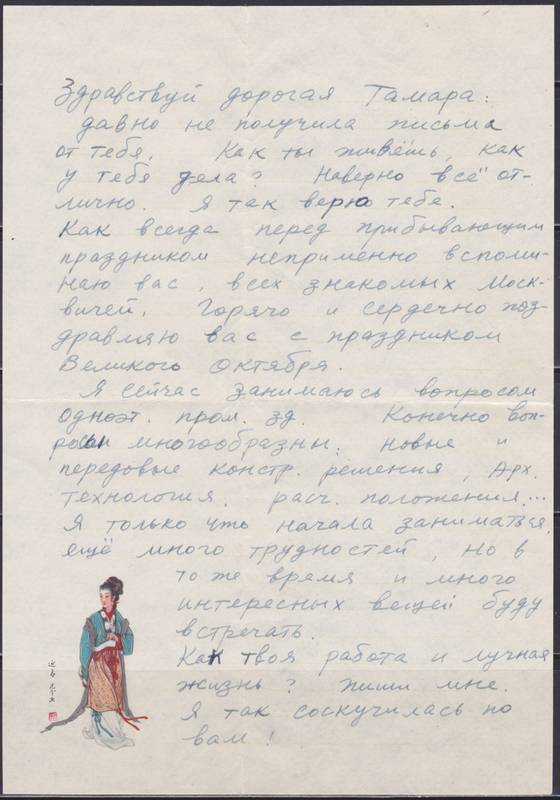 Здравствуй дорогая Тамара:
давно не получила письма
от тебя, Как ты живёшь, как
у тебя дела? Наверно всё от-
лично. Я так верю тебе.
Как всегда перед прибывающим
праздником неприменно вспоми-
наю вас, всех знакомых Моск-
вичей. Горячо и сердечно поз-
дравляю вас с праздником
Великого Октября.
Я сейчас занимаюсь вопросом
одноэт. пром. зд. Конечно воп-
росы многообразны. новые и
передовые констр. решения, Арх.
технология. расч. положения...
Я только что начала заниматься,
ещё много трудностей, но в
то же время и много
интересных вещей буду
встречать.
Как твоя работа и лучная
жизнь? пиши мне.
Я так соскучилась по
вам!